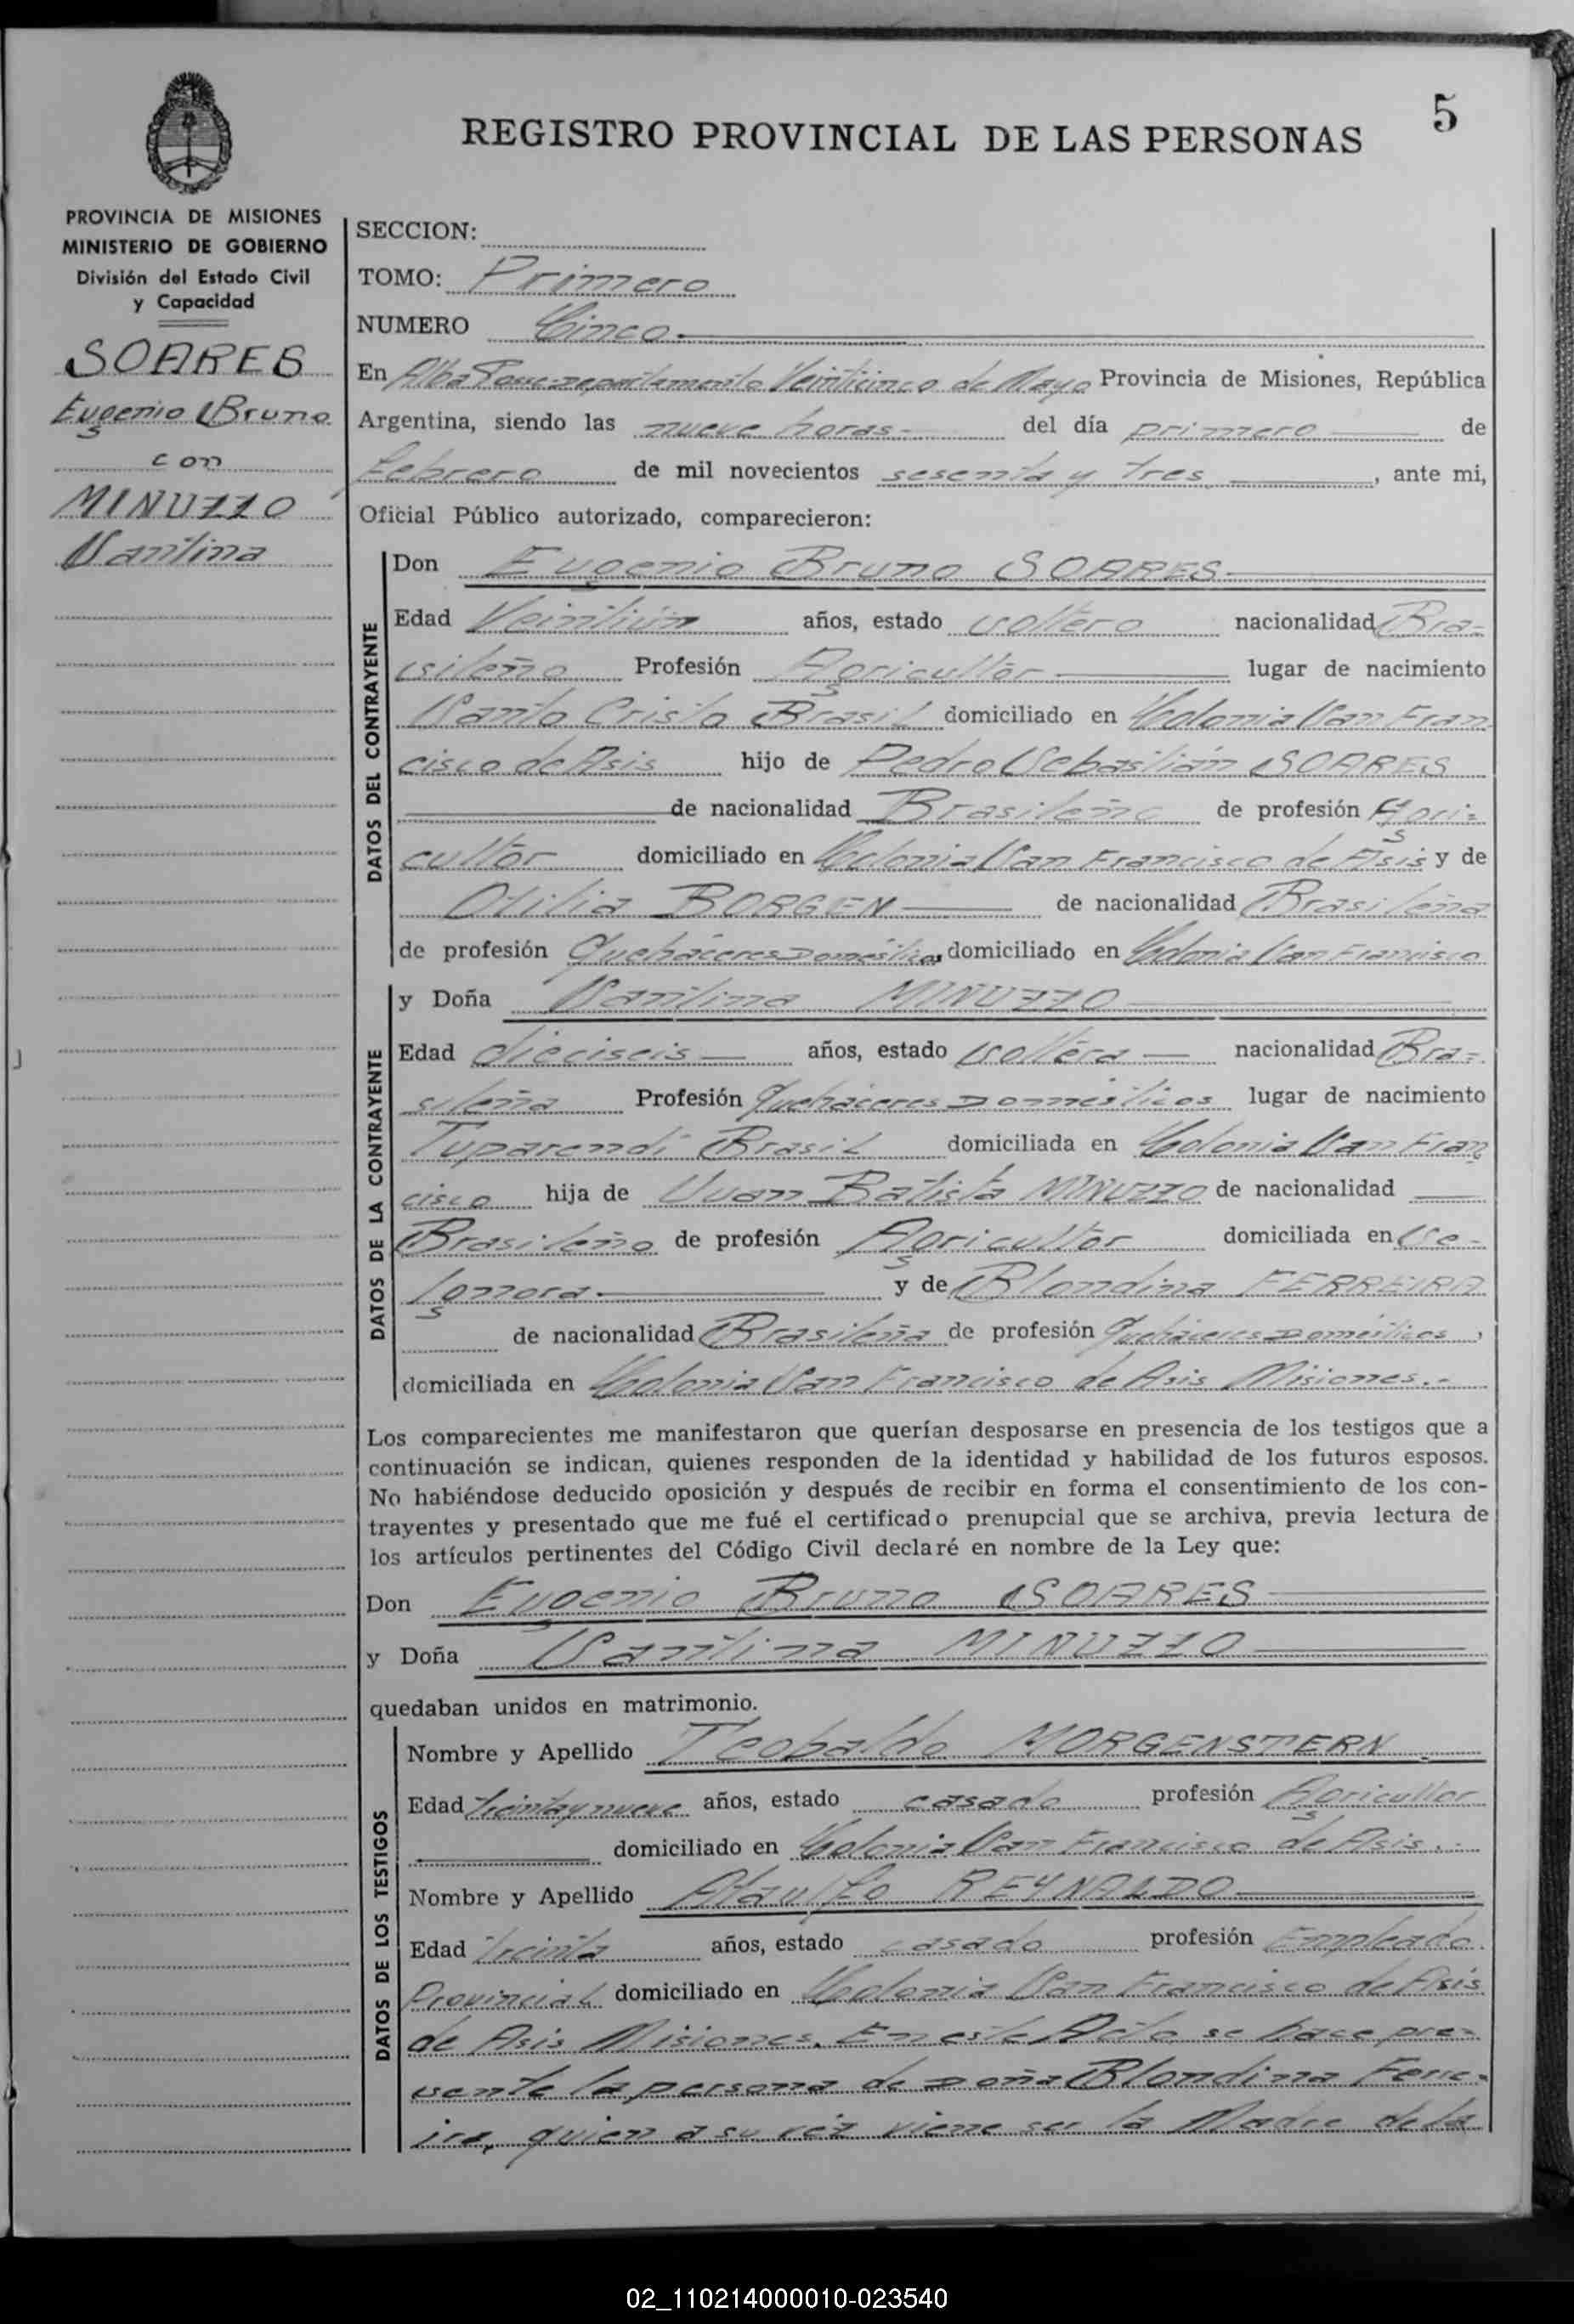 5
REGISTRO PROVINCIAL DE LAS PERSONAS
PROVINCIA DE MISIONES
MINISTERIO DE GOBIERNO
División del Estado Civil
y Capacidad
SOARES
Eugenio Bruno
con
MINUZZO
Santina
SECCION:
TOMO: Primero
NUMERO Cinco.
En Alba Posse departamento Veinticinco de Mayo Provincia de Misiones, República
Argentina, siendo las nueve horas- del día primero de
febrero de mil novecientos sesenta y tres, ante mi,
Oficial Público autorizado, comparecieron:
DATOS DEL CONTRAYENTE
Don Eugenio Bruno SOARES-
Edad Veintiún años, estado soltero nacionalidad Bra-
sileño Profesión Agricultor lugar de nacimiento
Santo Cristo Brasil domiciliado en Colonia San Fran
cisco de Asis hijo de Pedro Sebastián SOARES
de nacionalidad Brasileño de profesión Agri-
cultor domiciliado en Colonia San Francisco de Asis y de
Otilia BORGEN de nacionalidad Brasileña
de profesión Quehaceres Domésticos domiciliado en Colonia San Francisco
DATOS DE LA CONTRAYENTE
y Doña Santina MINUZZO
Edad dieciseis años, estado soltera nacionalidad Bra-
sileña Profesión Quehaceres Domésticos lugar de nacimiento
Tuparendi Brasil domiciliada en Colonia San Fran
cisco hija de Juan Batista MINUZZO de nacionalidad
Brasileño de profesión Agricultor domiciliada en Se-
ignora. y de Blondina FERREIRA
de nacionalidad Brasileña de profesión Quehaceres Domésticos,
domiciliada en Colonia San Francisco de Asis Misiones.-
Los comparecientes me manifestaron que querían desposarse en presencia de los testigos que a
continuación se indican, quienes responden de la identidad y habilidad de los futuros esposos.
No habiéndose deducido oposición y después de recibir en forma el consentimiento de los con-
trayentes y presentado que me fué el certificado prenupcial que se archiva, previa lectura de
los artículos pertinentes del Código Civil declaré en nombre de la Ley que:
Don Eugenio Bruno SOARES
y Doña Santina MINUZZO
quedaban unidos en matrimonio.
DATOS DE LOS TESTIGOS
Nombre y Apellido Teobaldo MORGENSTERN
Edad treinta y nueve años, estado casado profesión Agricultor
domiciliado en Colonia San Francisco de Asis.-
Nombre y Apellido Ataulfo REYNALDO
Edad treinta años, estado casado profesión Empleado
Provincial domiciliado en Colonia San Francisco de Asis
de Asis Misiones. En este Acto se hace pre-
sente la persona de Doña Blondina Ferre-
ira, quien a su vez viene ser la Madre de la
02_110214000010-023540